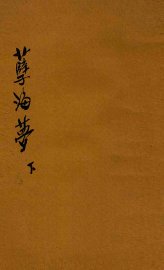 孽海夢下